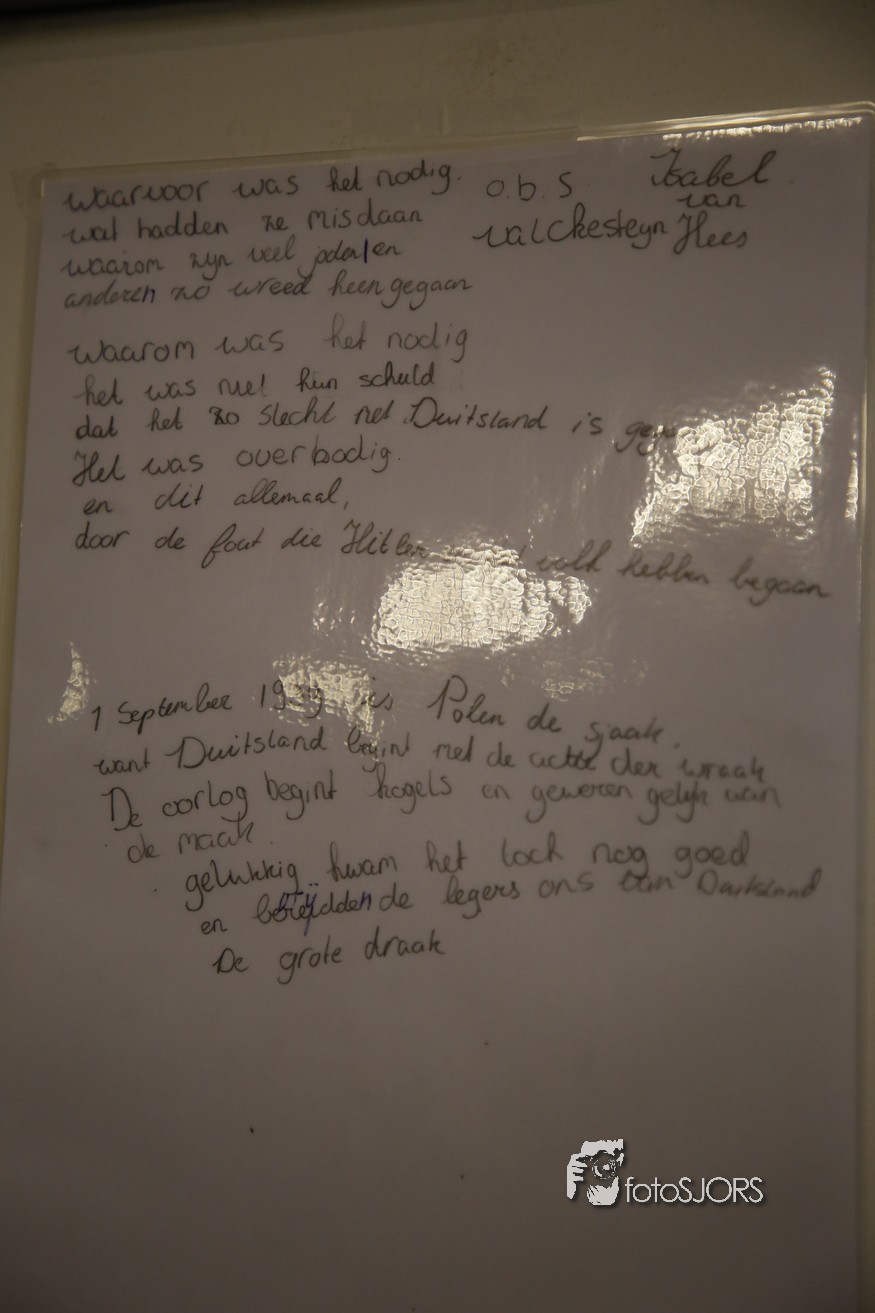 waarvoor was het nodig.
wat hadden ze misdaan
waarom zyn veel joden/en
anderen zo wreed heengegaan
o.b.s. Isabel
van
valckesteyn Hees
waarom was het nodig
het was niet hun schuld
dat het zo slecht met Duitsland is
Het was overbodig.
en dit allemaal,
door de fout die Hitler volk hebben begaan
1 September 1939 is Polen de sjaak.
want Duitsland begint met de actie der wraak
De oorlog begint kogels en geweren gelijk van
de maak.
gelukkig kwam het toch nog goed
en de legers ons van Duitsland
De grote draak
fotoSJORS